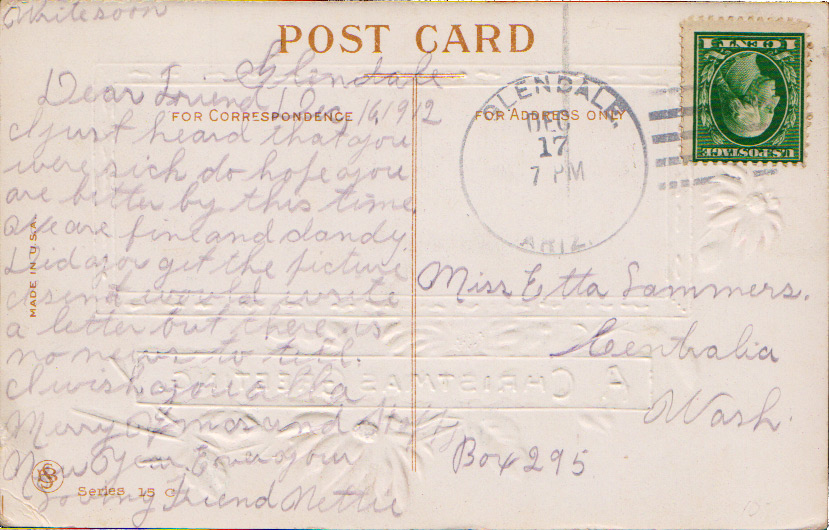 Write soon
POST CARD
Glendale
Dec 16, 1912
FOR CORRESPONDENCE
FOR ADDRESS ONLY
Dear Friend
I just heard that you
were sick do hope you
are better by this time.
We are fine and dandy.
Did you get the picture
I send would write
a letter but there is
no news to tell.
I wish you all a
Merry Xmas and Happy
New Year Ever your
loving Friend Nettie
MADE IN U.S.A.
Series 15 C
GLENDALE,
DEC
17
7 PM
ARIZ.
U.S. POSTAGE
1 CENT 1
Miss Etta Sammers.
Centralia
Wash.
Box 295
A CHRISTMAS GREETING